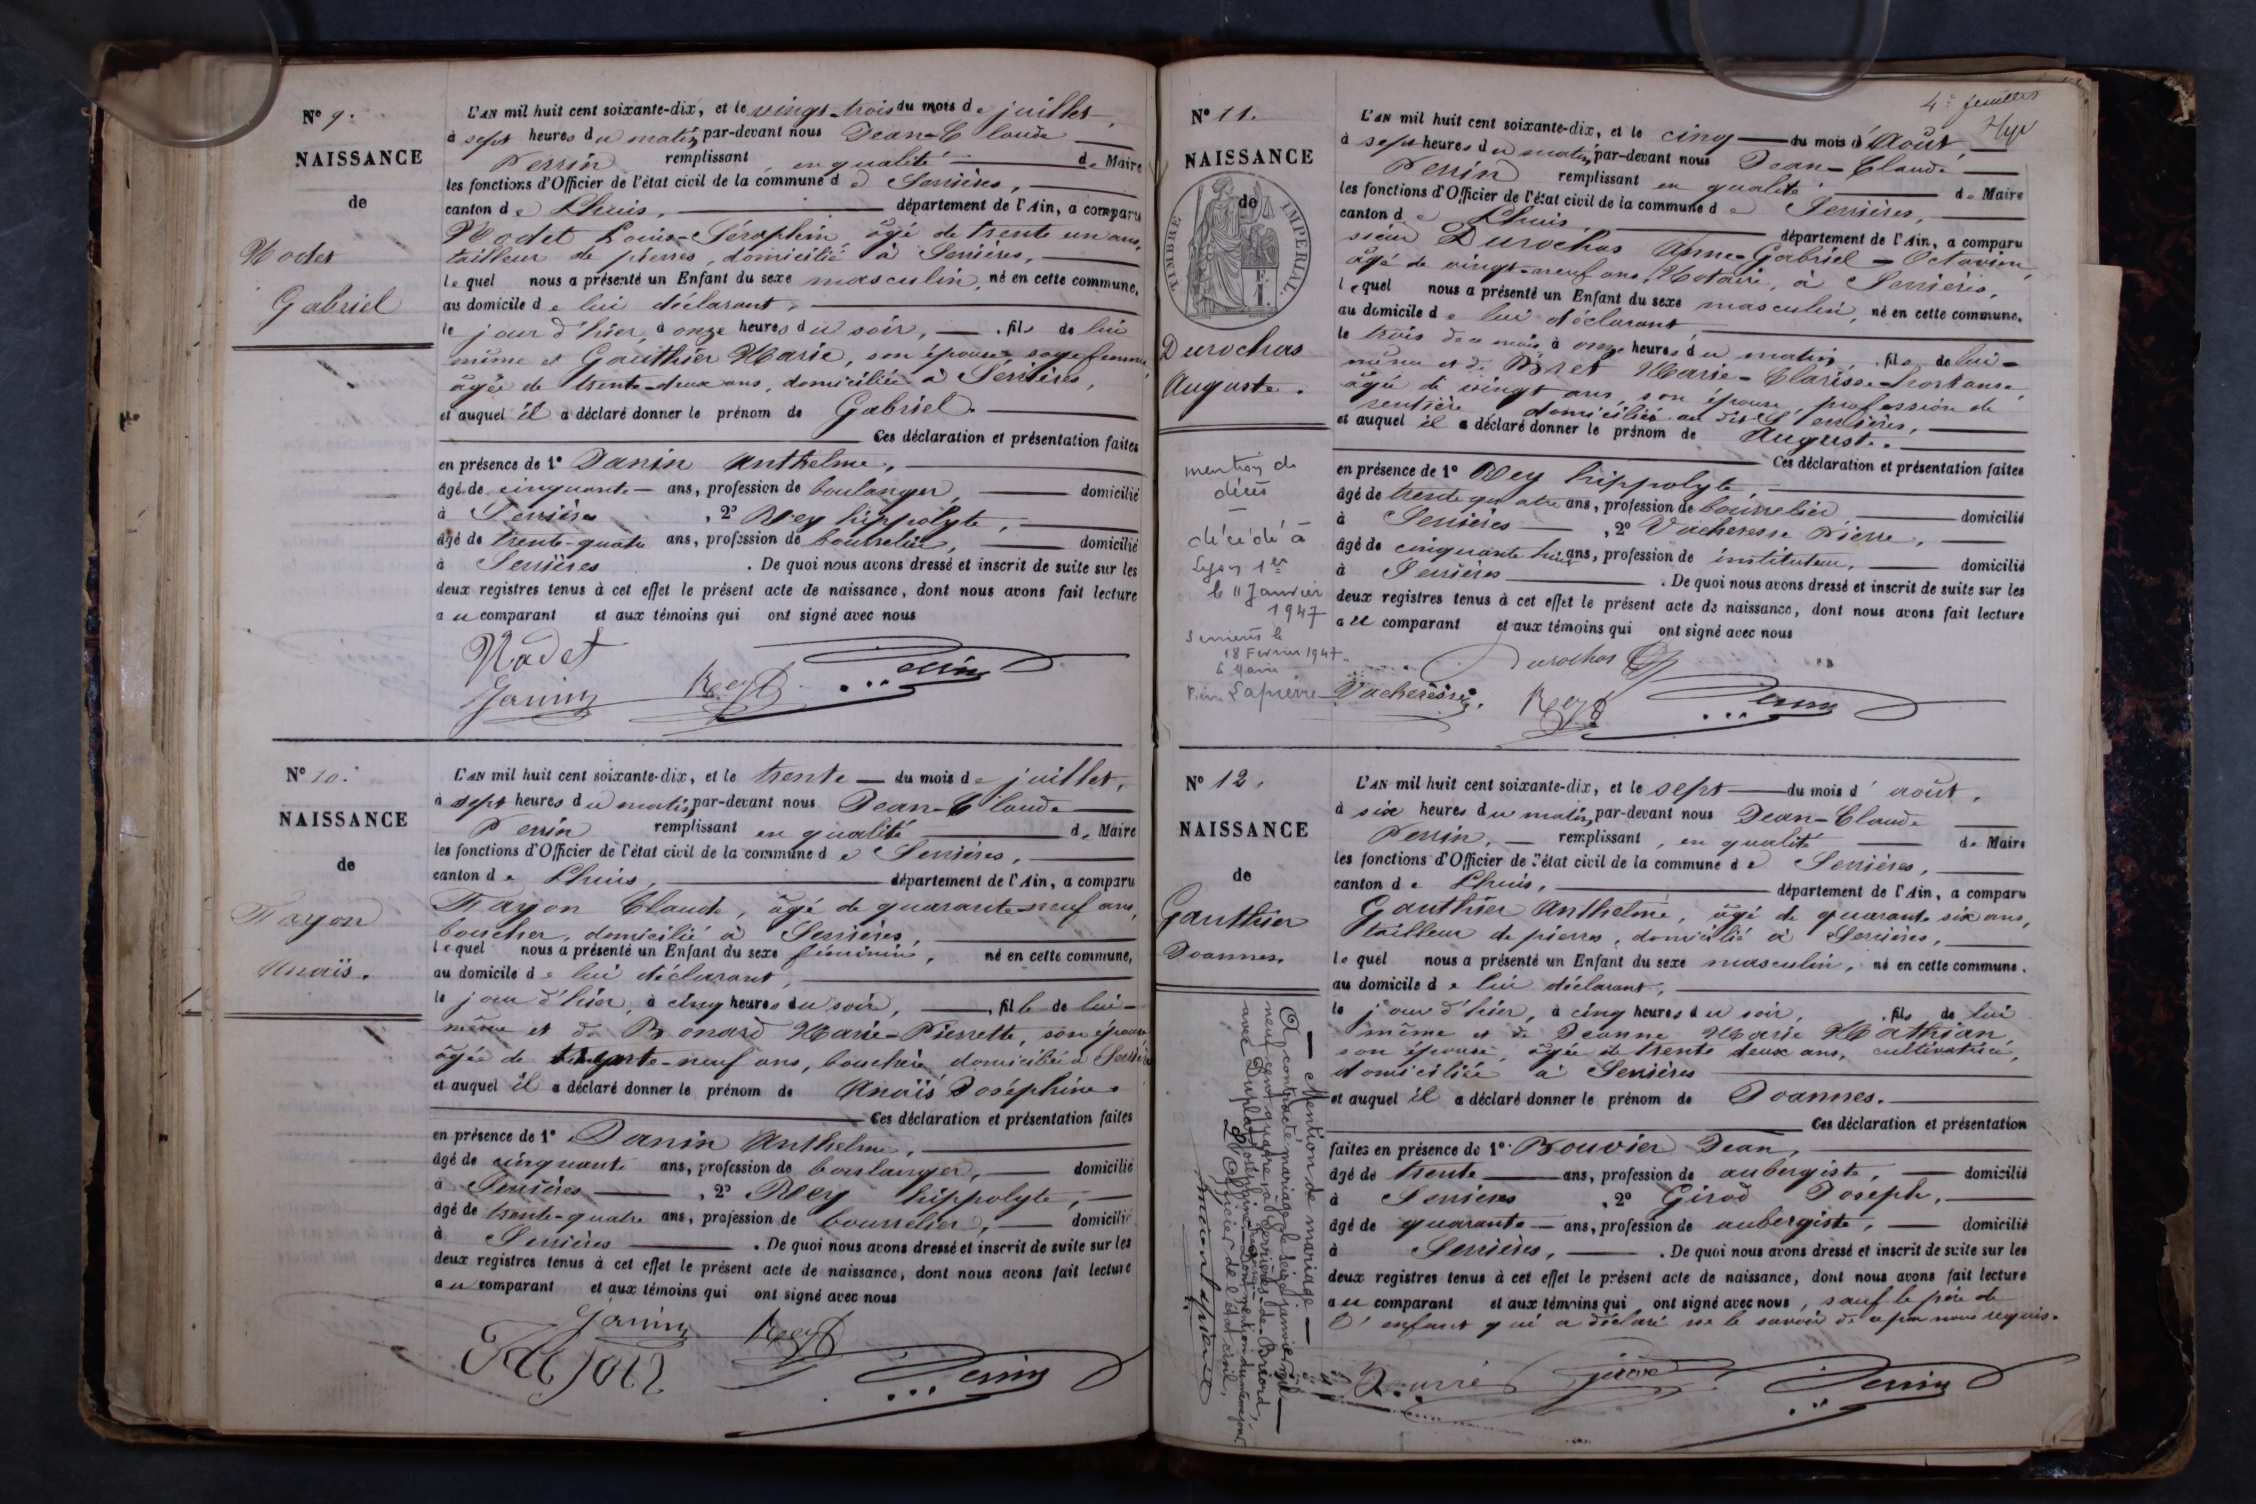 N° 9.
NAISSANCE
de
Nodet
Gabriel
L'AN mil huit cent soixante-dix, et le vingt-trois du mois de juillet,
à sept heures du matin, par-devant nous Jean-Claude
Perrin remplissant en qualité de Maire
les fonctions d'Officier de l'état civil de la commune de Serrières,
canton de Lhuis, département de l'Ain, a comparu
Nodet Louis-Séraphin âgé de trente un ans,
tailleur de pierres, domicilié à Serrières,
lequel nous a présenté un Enfant du sexe masculin, né en cette commune,
au domicile de lui déclarant,
le jour d'hier, à onze heures du soir, fils de lui
même et Gauthier Marie, son épouse, sage femme,
âgée de trente-deux ans, domiciliée à Serrières,
et auquel il a déclaré donner le prénom de Gabriel.
Ces déclaration et présentation faites
en présence de 1° Janin Anthelme,
âgé de cinquante ans, profession de boulanger, domicilié
à Serrières, 2° Rey hippolyte,
âgé de trente-quatre ans, profession de bourrelier, domicilié
à Serrières. De quoi nous avons dressé et inscrit de suite sur les
deux registres tenus à cet effet le présent acte de naissance, dont nous avons fait lecture
au comparant et aux témoins qui ont signé avec nous
Nodet
Janin Rey Perrin
N° 10.
NAISSANCE
de
Fayon
Anaïs.
L'AN mil huit cent soixante-dix, et le trente du mois de juillet,
à sept heures du matin, par-devant nous Jean-Claude
Perrin remplissant en qualité de Maire
les fonctions d'Officier de l'état civil de la commune de Serrières,
canton de Lhuis, département de l'Ain, a comparu
Fayon Claude, âgé de quarante-neuf ans,
boucher, domicilié à Serrières,
lequel nous a présenté un Enfant du sexe féminin, né en cette commune,
au domicile de lui déclarant,
le jour d'hier, à cinq heures du soir, fille de lui-
même et de Bonard Marie-Pierrette, son épouse
âgée de trente-neuf ans, bouchère, domiciliée à Serrières
et auquel il a déclaré donner le prénom de Anaïs Joséphine
Ces déclaration et présentation faites
en présence de 1° Janin Anthelme,
âgé de cinquante ans, profession de boulanger, domicilié
à Serrières, 2° Rey hippolyte,
âgé de trente-quatre ans, profession de bourrelier, domicilié
à Serrières. De quoi nous avons dressé et inscrit de suite sur les
deux registres tenus à cet effet le présent acte de naissance, dont nous avons fait lecture
au comparant et aux témoins qui ont signé avec nous
Janin Rey
Fayon Perrin
4e feuillet
N° 11.
NAISSANCE
de
TIMBRE IMPERIAL
Durochas
Auguste.
mention de
décès
décédé à
Lyon 1er
le 11 Janvier
1947
Serrières le
18 Fevrier 1947
le Maire
Lapierre
L'AN mil huit cent soixante-dix, et le cinq du mois d'Août,
à sept heures du matin, par-devant nous Jean-Claude
Perrin remplissant en qualité de Maire
les fonctions d'Officier de l'état civil de la commune de Serrières,
canton de Lhuis, département de l'Ain, a comparu
sieur Durochas Anne-Gabriel-Octavien,
âgé de vingt-neuf ans, Notaire, à Serrières,
lequel nous a présenté un Enfant du sexe masculin, né en cette commune,
au domicile de lui déclarant
le trois de ce mois, à onze heures du matin, fils de lui-
même et de Bret Marie-Clarisse-hortense,
âgée de vingt ans, son épouse, profession de
rentière, domiciliée au dit Serrières,
et auquel il a déclaré donner le prénom de Auguste.
Ces déclaration et présentation faites
en présence de 1° Rey hippolyte,
âgé de trente quatre ans, profession de bourrelier domicilié
à Serrières, 2° Vacheresse Pierre,
âgé de cinquante huit ans, profession de instituteur, domicilié
à Serrières. De quoi nous avons dressé et inscrit de suite sur les
deux registres tenus à cet effet le présent acte de naissance, dont nous avons fait lecture
au comparant et aux témoins qui ont signé avec nous
Durochas
Vacheresse Rey Perrin
N° 12.
NAISSANCE
de
Gauthier
Joannes.
Mention de mariage
A contracté mariage le seize janvier mil
neuf cent quatre à Serrières-de-Briord,
avec Duplâtre
L'Officier de l'état civil,
L'AN mil huit cent soixante-dix, et le sept du mois d'août,
à six heures du matin, par-devant nous Jean-Claude
Perrin, remplissant, en qualité de Maire
les fonctions d'Officier de l'état civil de la commune de Serrières,
canton de Lhuis, département de l'Ain, a comparu
Gauthier Anthelme, âgé de quarante six ans,
tailleur de pierres, domicilié à Serrières,
lequel nous a présenté un Enfant du sexe masculin, né en cette commune,
au domicile de lui déclarant,
le jour d'hier, à cinq heures du soir, fils de lui
même et de Jeanne Marie Mathian,
son épouse, âgée de trente deux ans, cultivatrice,
domiciliée à Serrières
et auquel il a déclaré donner le prénom de Joannes.
Ces déclaration et présentation
faites en présence de 1° Bouvier Jean,
âgé de trente ans, profession de aubergiste, domicilié
à Serrières, 2° Girod Joseph,
âgé de quarante ans, profession de aubergiste, domicilié
à Serrières. De quoi nous avons dressé et inscrit de suite sur les
deux registres tenus à cet effet le présent acte de naissance, dont nous avons fait lecture
au comparant et aux témoins qui ont signé avec nous, sauf le père de
l'enfant qui a déclaré ne le savoir de ce par nous requis.
Girod Perrin